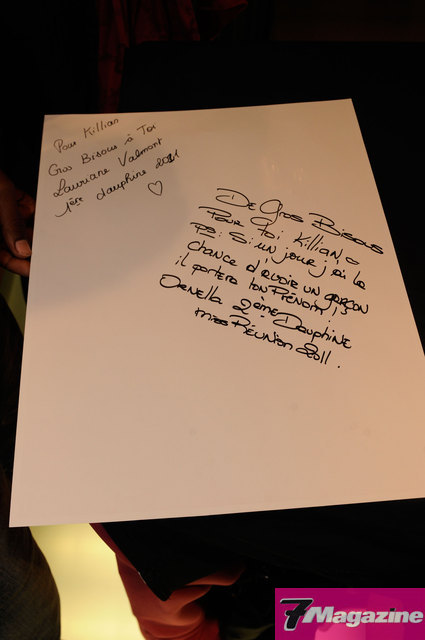 Pour Killian
Gros Bisous à Toi
Lauriane Valmont
1ère dauphine 2011
De Gros Bisous
Pour toi Killian
PS: Si un jour j'ai la
chance d'avoir un garçon
il portera ton Prénom !
Ornella 2ème Dauphine
miss Réunion 2011.
7Magazine